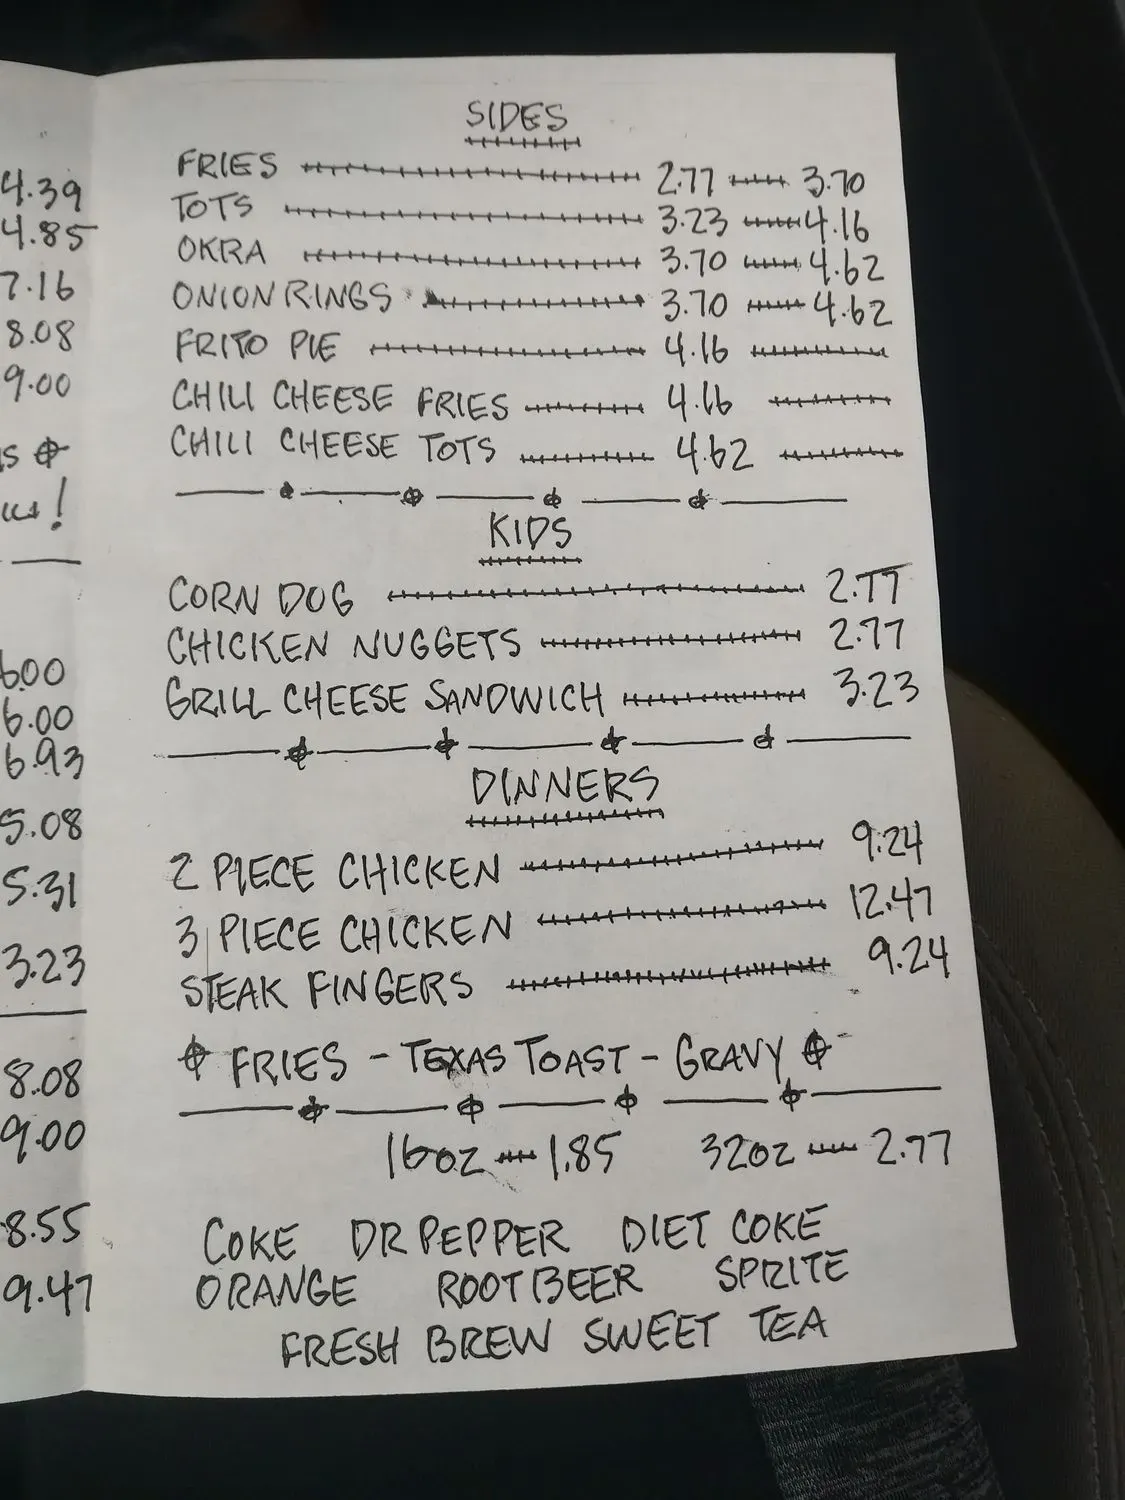 4.39
4.85
7.16
8.08
9.00
6.00
6.00
6.93
5.08
5.31
3.23
8.08
9.00
8.55
9.47
SIDES
FRIES 2.77 3.70
TOTS 3.23 4.16
OKRA 3.70 4.62
ONION RINGS 3.70 4.62
FRITO PIE 4.16
CHILI CHEESE FRIES 4.16
CHILI CHEESE TOTS 4.62
KIDS
CORN DOG 2.77
CHICKEN NUGGETS 2.77
GRILL CHEESE SANDWICH 3.23
DINNERS
2 PIECE CHICKEN 9.24
3 PIECE CHICKEN 12.47
STEAK FINGERS 9.24
FRIES - TEXAS TOAST - GRAVY
16oz 1.85 32oz 2.77
COKE DR PEPPER DIET COKE
ORANGE ROOTBEER SPRITE
FRESH BREW SWEET TEA